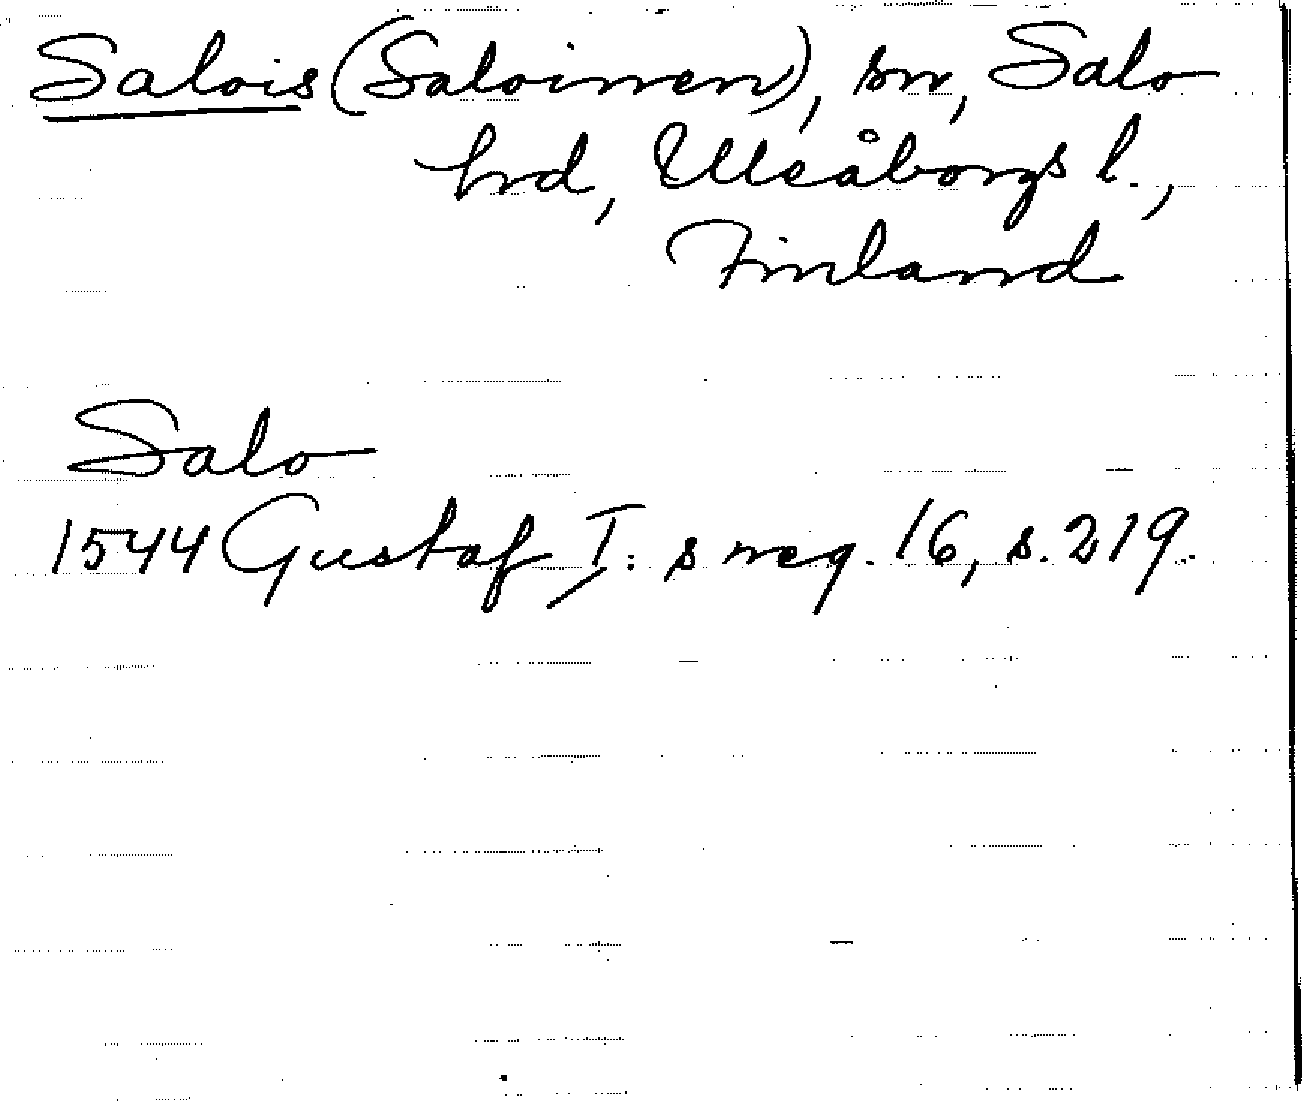 Salois (Saloinen), sn, Salo
hrd, Uleåborgs l.,
Finland
Salo
1544 Gustaf I:s reg. 16, s. 219.